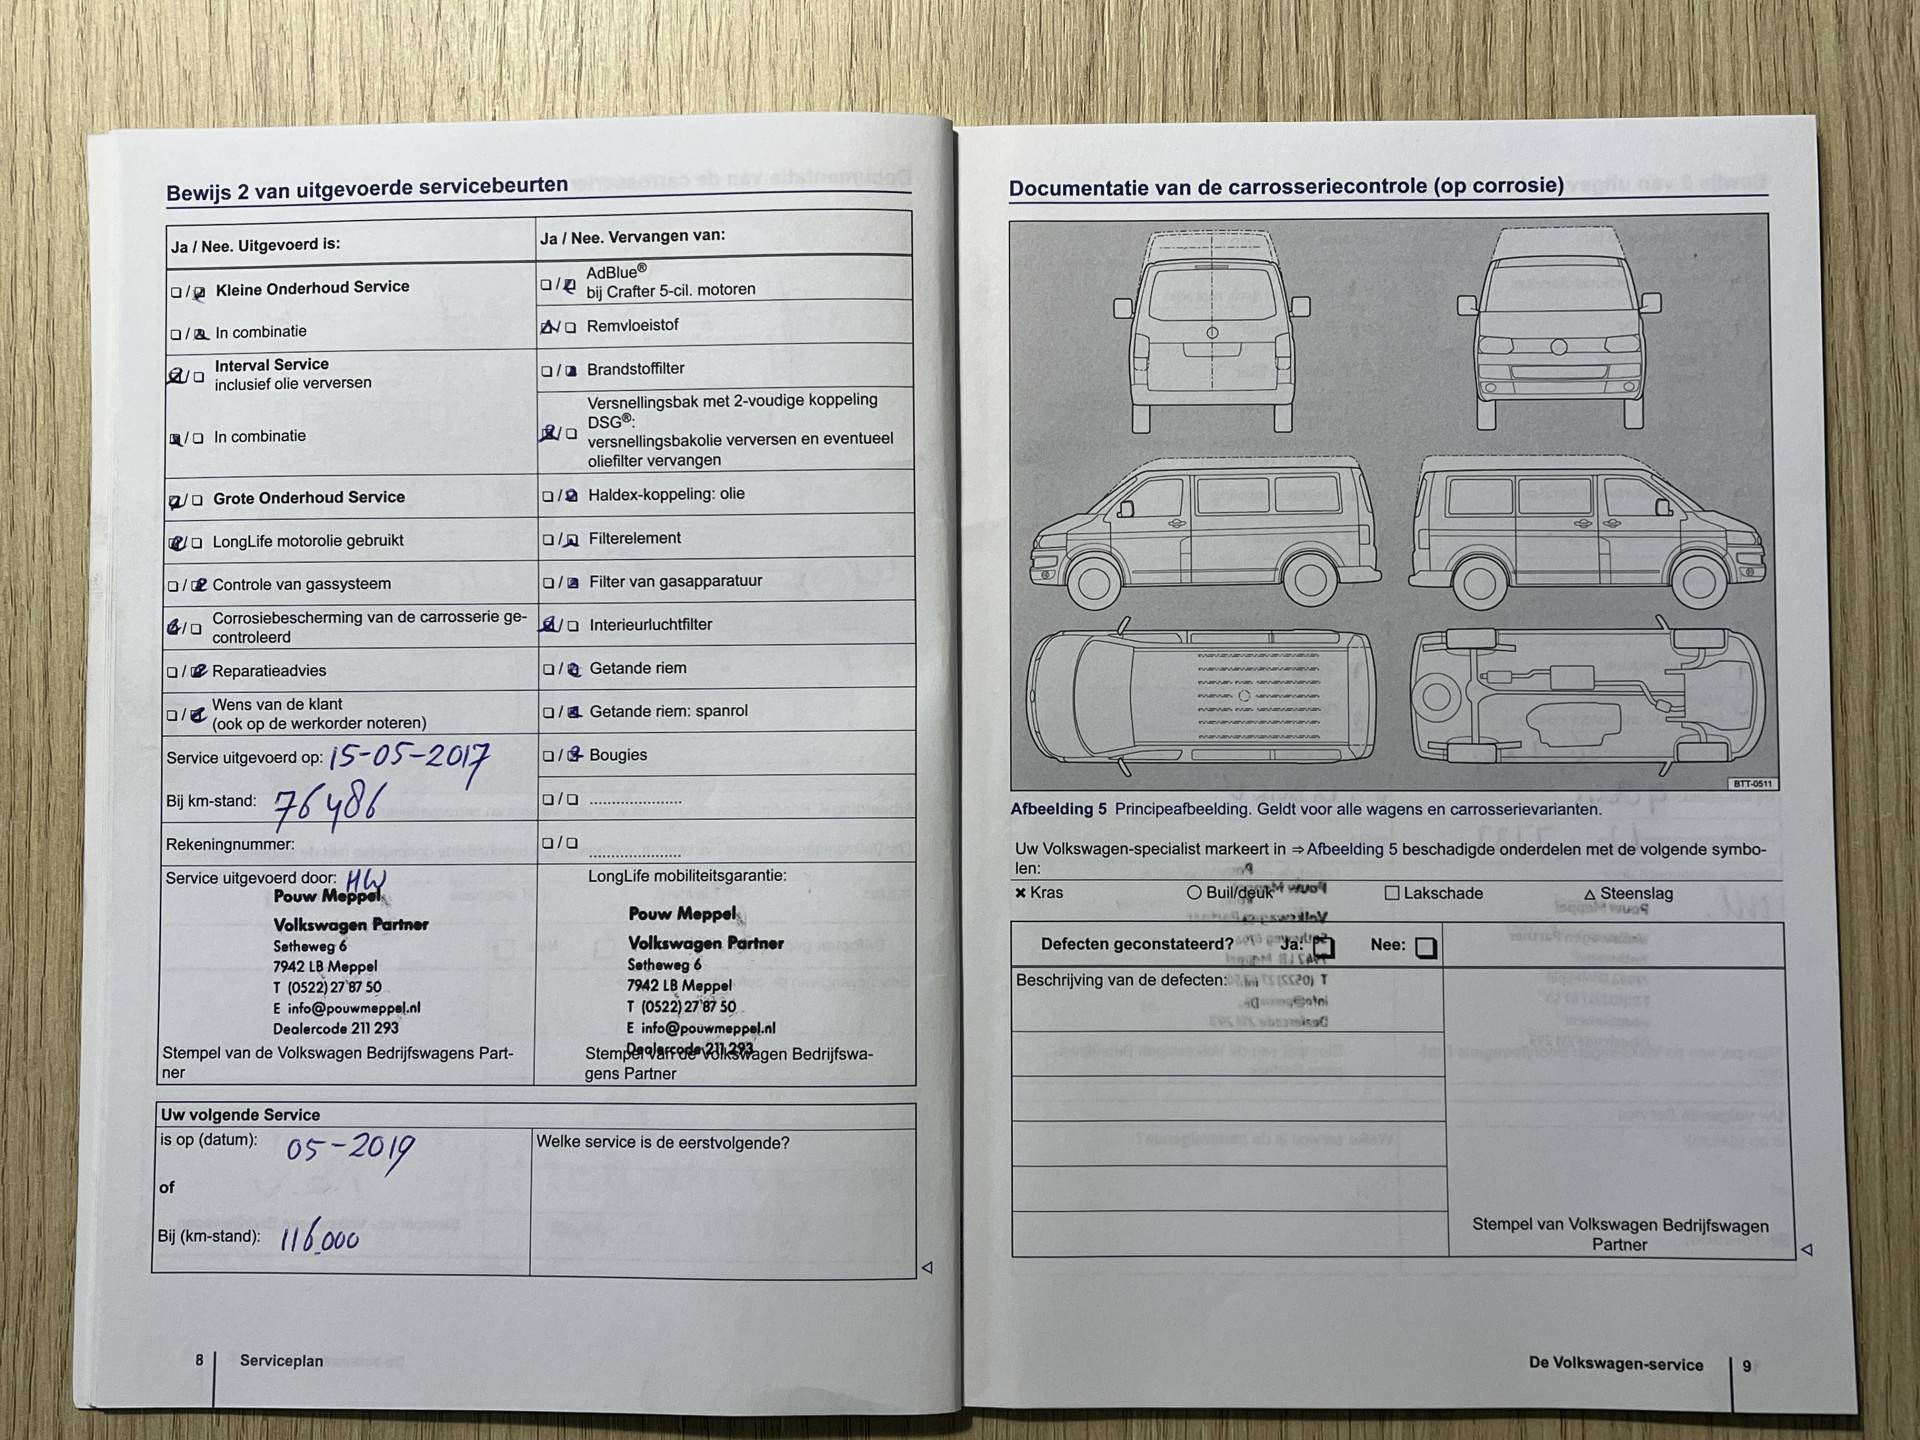 Bewijs 2 van uitgevoerde servicebeurten
Ja / Nee. Uitgevoerd is:
Ja / Nee. Vervangen van:
Kleine Onderhoud Service
In combinatie
Interval Service
inclusief olie verversen
In combinatie
Grote Onderhoud Service
LongLife motorolie gebruikt
Controle van gassysteem
Corrosiebescherming van de carrosserie ge-
controleerd
Reparatieadvies
Wens van de klant
(ook op de werkorder noteren)
Service uitgevoerd op: 15-05-2017
Bij km-stand: 76486
Rekeningnummer:
Service uitgevoerd door: HW
Pouw Meppel
Volkswagen Partner
Setheweg 6
7942 LB Meppel
T (0522) 27 87 50
E info@pouwmeppel.nl
Dealercode 211 293
Stempel van de Volkswagen Bedrijfswagens Part-
ner
AdBlue®
bij Crafter 5-cil. motoren
Remvloeistof
Brandstoffilter
Versnellingsbak met 2-voudige koppeling
DSG®:
versnellingsbakolie verversen en eventueel
oliefilter vervangen
Haldex-koppeling: olie
Filterelement
Filter van gasapparatuur
Interieurluchtfilter
Getande riem
Getande riem: spanrol
Bougies
LongLife mobiliteitsgarantie:
Pouw Meppel
Volkswagen Partner
Setheweg 6
7942 LB Meppel
T (0522) 27 87 50
E info@pouwmeppel.nl
Dealercode 211 293
Stempel van de Volkswagen Bedrijfswa-
gens Partner
Uw volgende Service
is op (datum): 05-2019
of
Bij (km-stand): 116.000
Welke service is de eerstvolgende?
8 Serviceplan
Documentatie van de carrosseriecontrole (op corrosie)
BTT-0511
Afbeelding 5 Principeafbeelding. Geldt voor alle wagens en carrosserievarianten.
Uw Volkswagen-specialist markeert in ⇒ Afbeelding 5 beschadigde onderdelen met de volgende symbo-
len:
× Kras ○ Buil/deuk □ Lakschade △ Steenslag
Defecten geconstateerd? Ja: Nee:
Beschrijving van de defecten:
Stempel van Volkswagen Bedrijfswagen
Partner
De Volkswagen-service 9